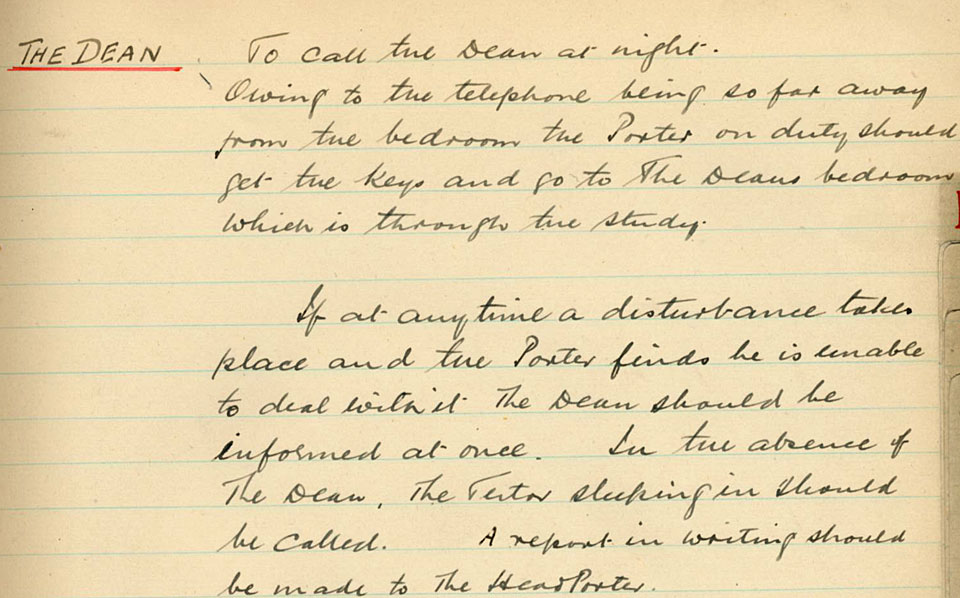 THE DEAN To call the Dean at night.
Owing to the telephone being so far away
from the bedroom the Porter on duty should
get the keys and go to The Deans bedroom
which is through the study.
If at anytime a disturbance takes
place and the Porter finds he is unable
to deal with it The Dean should be
informed at once. In the absence of
The Dean, The Tutor sleeping in should
be called. A report in writing should
be made to The Head Porter.